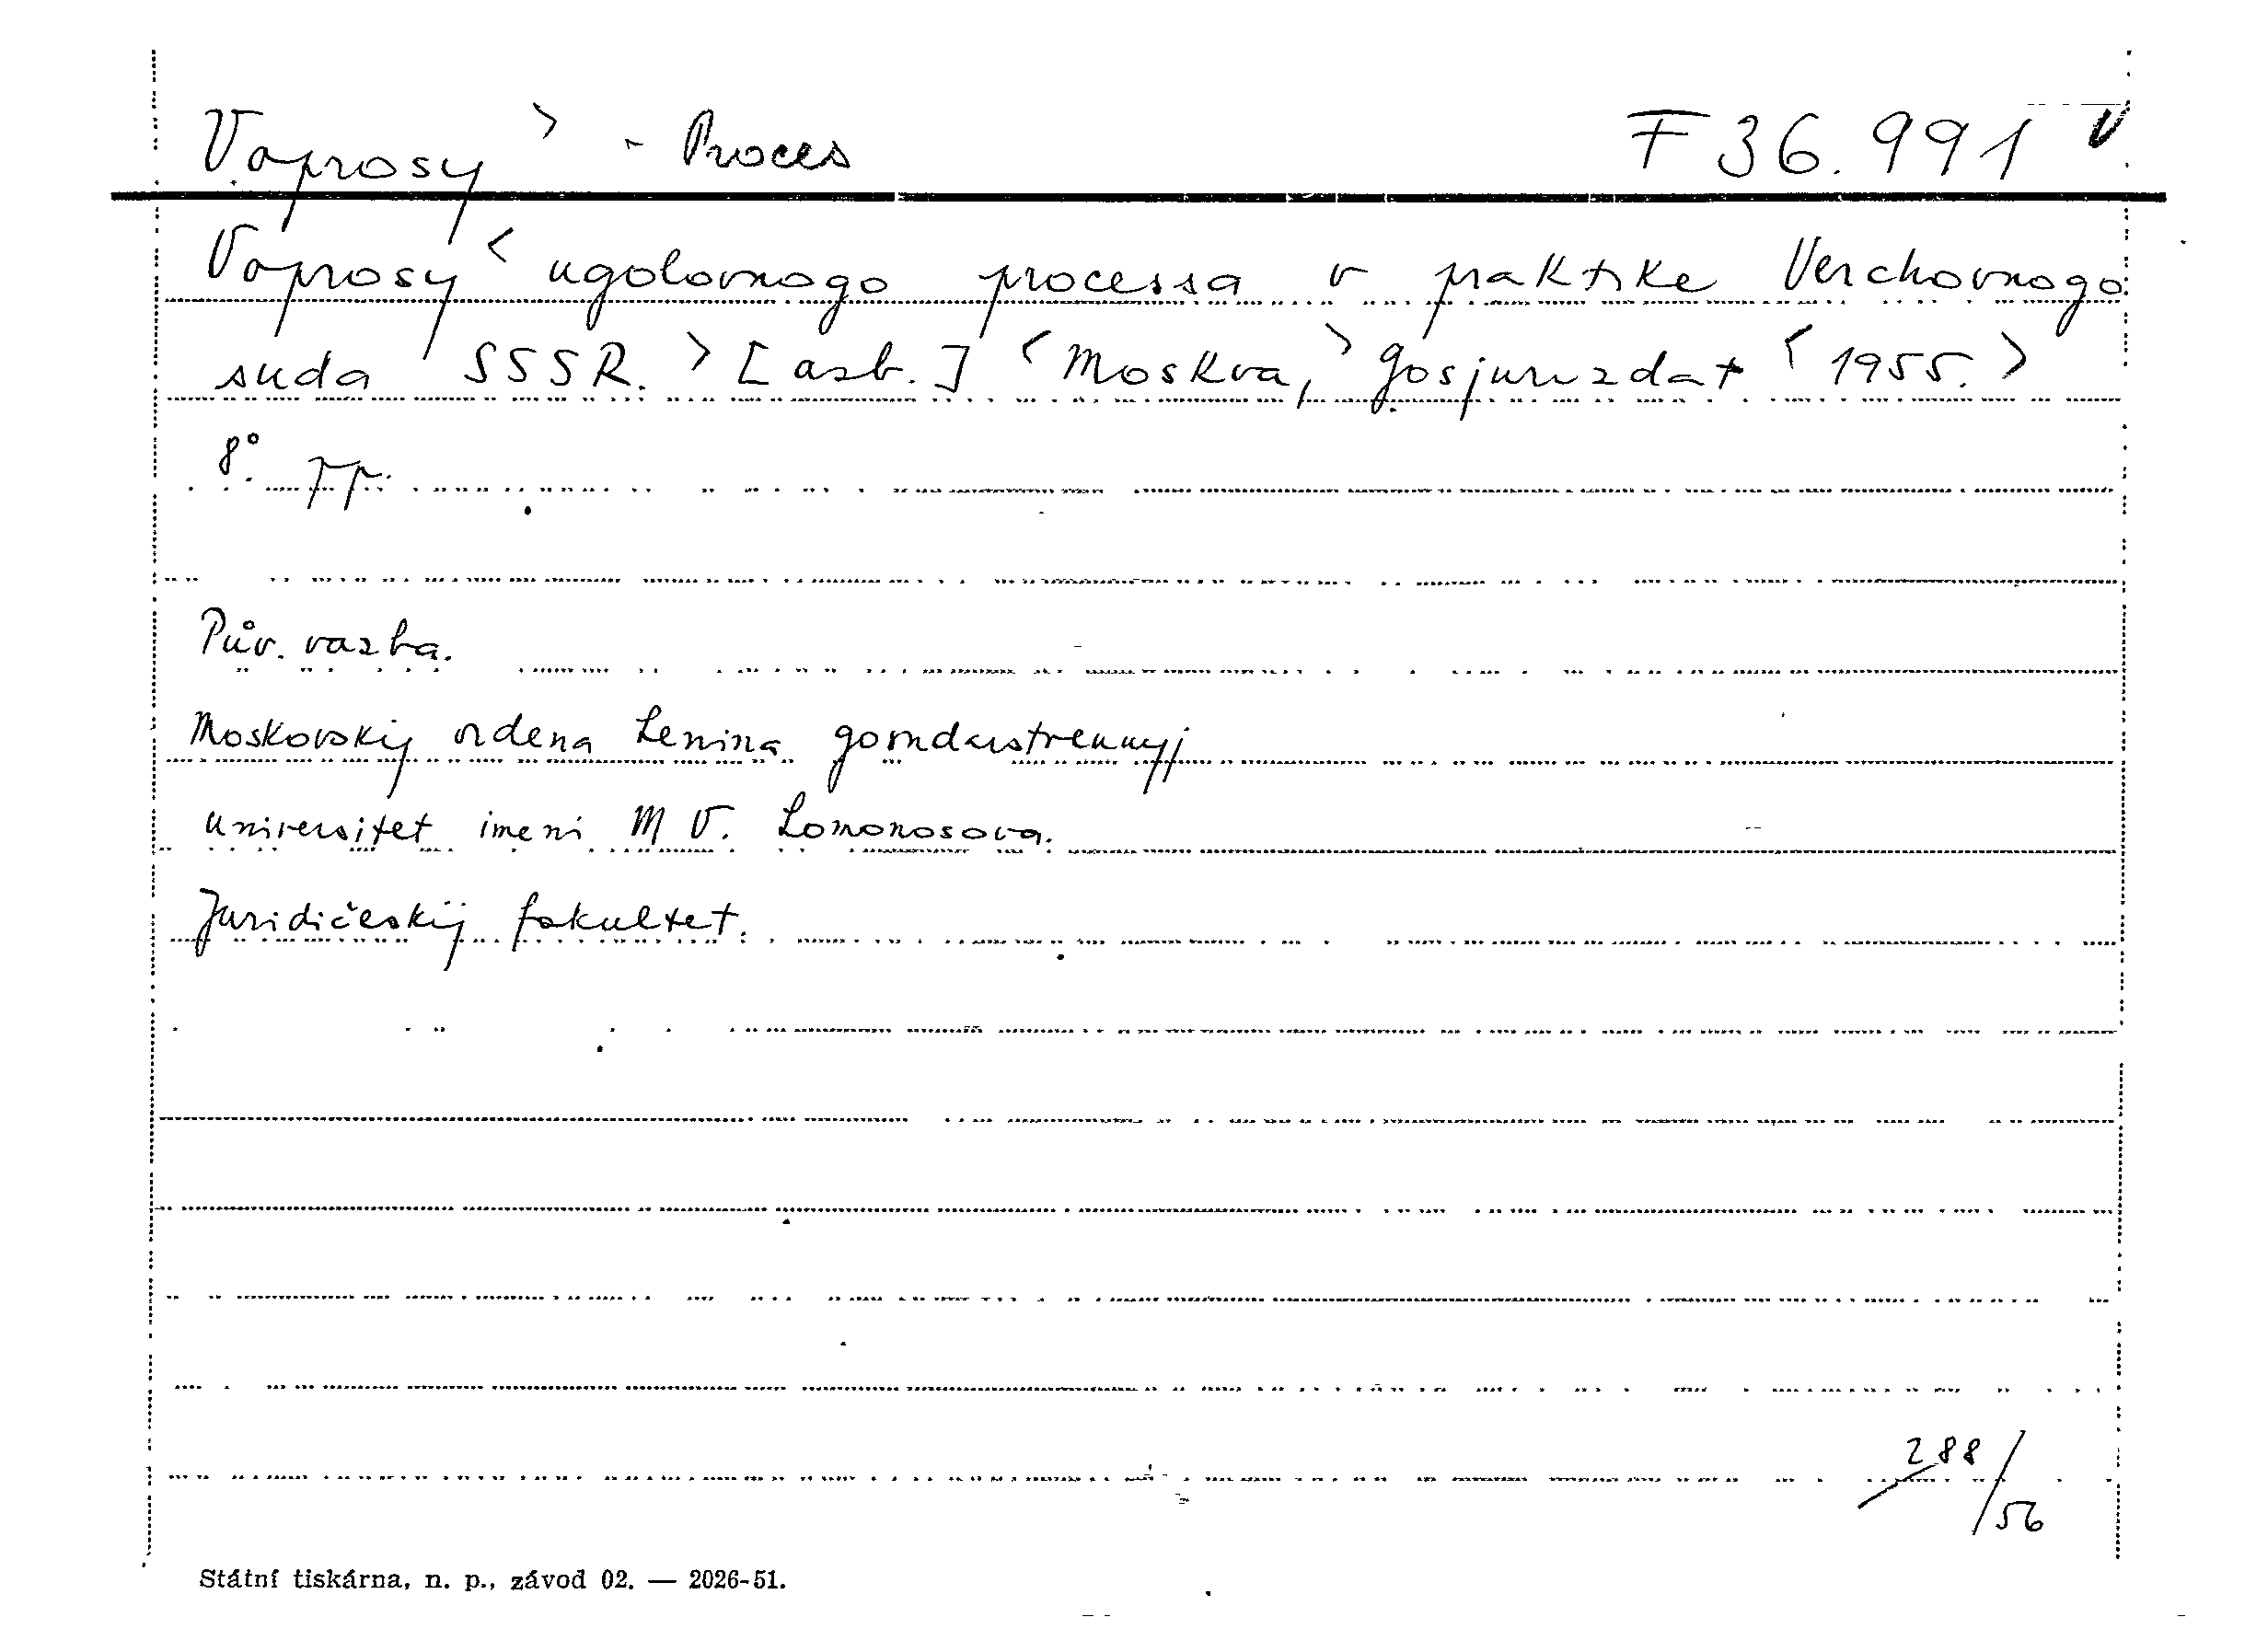 Voprosy > - Proces F 36.991 V
Voprosy < ugolovnogo processa v praktike Verchovnogo
suda SSSR. > [azb.] < Moskva, > Gosjurizdat < 1955. >
8°. pp.
Pův. vazba.
Moskovskij ordena Lenina gosudarstvennyj
universitet imeni M V. Lomonosova.
Juridičeskij fakultet.
288/56
Státní tiskárna, n. p., závod 02. — 2026-51.